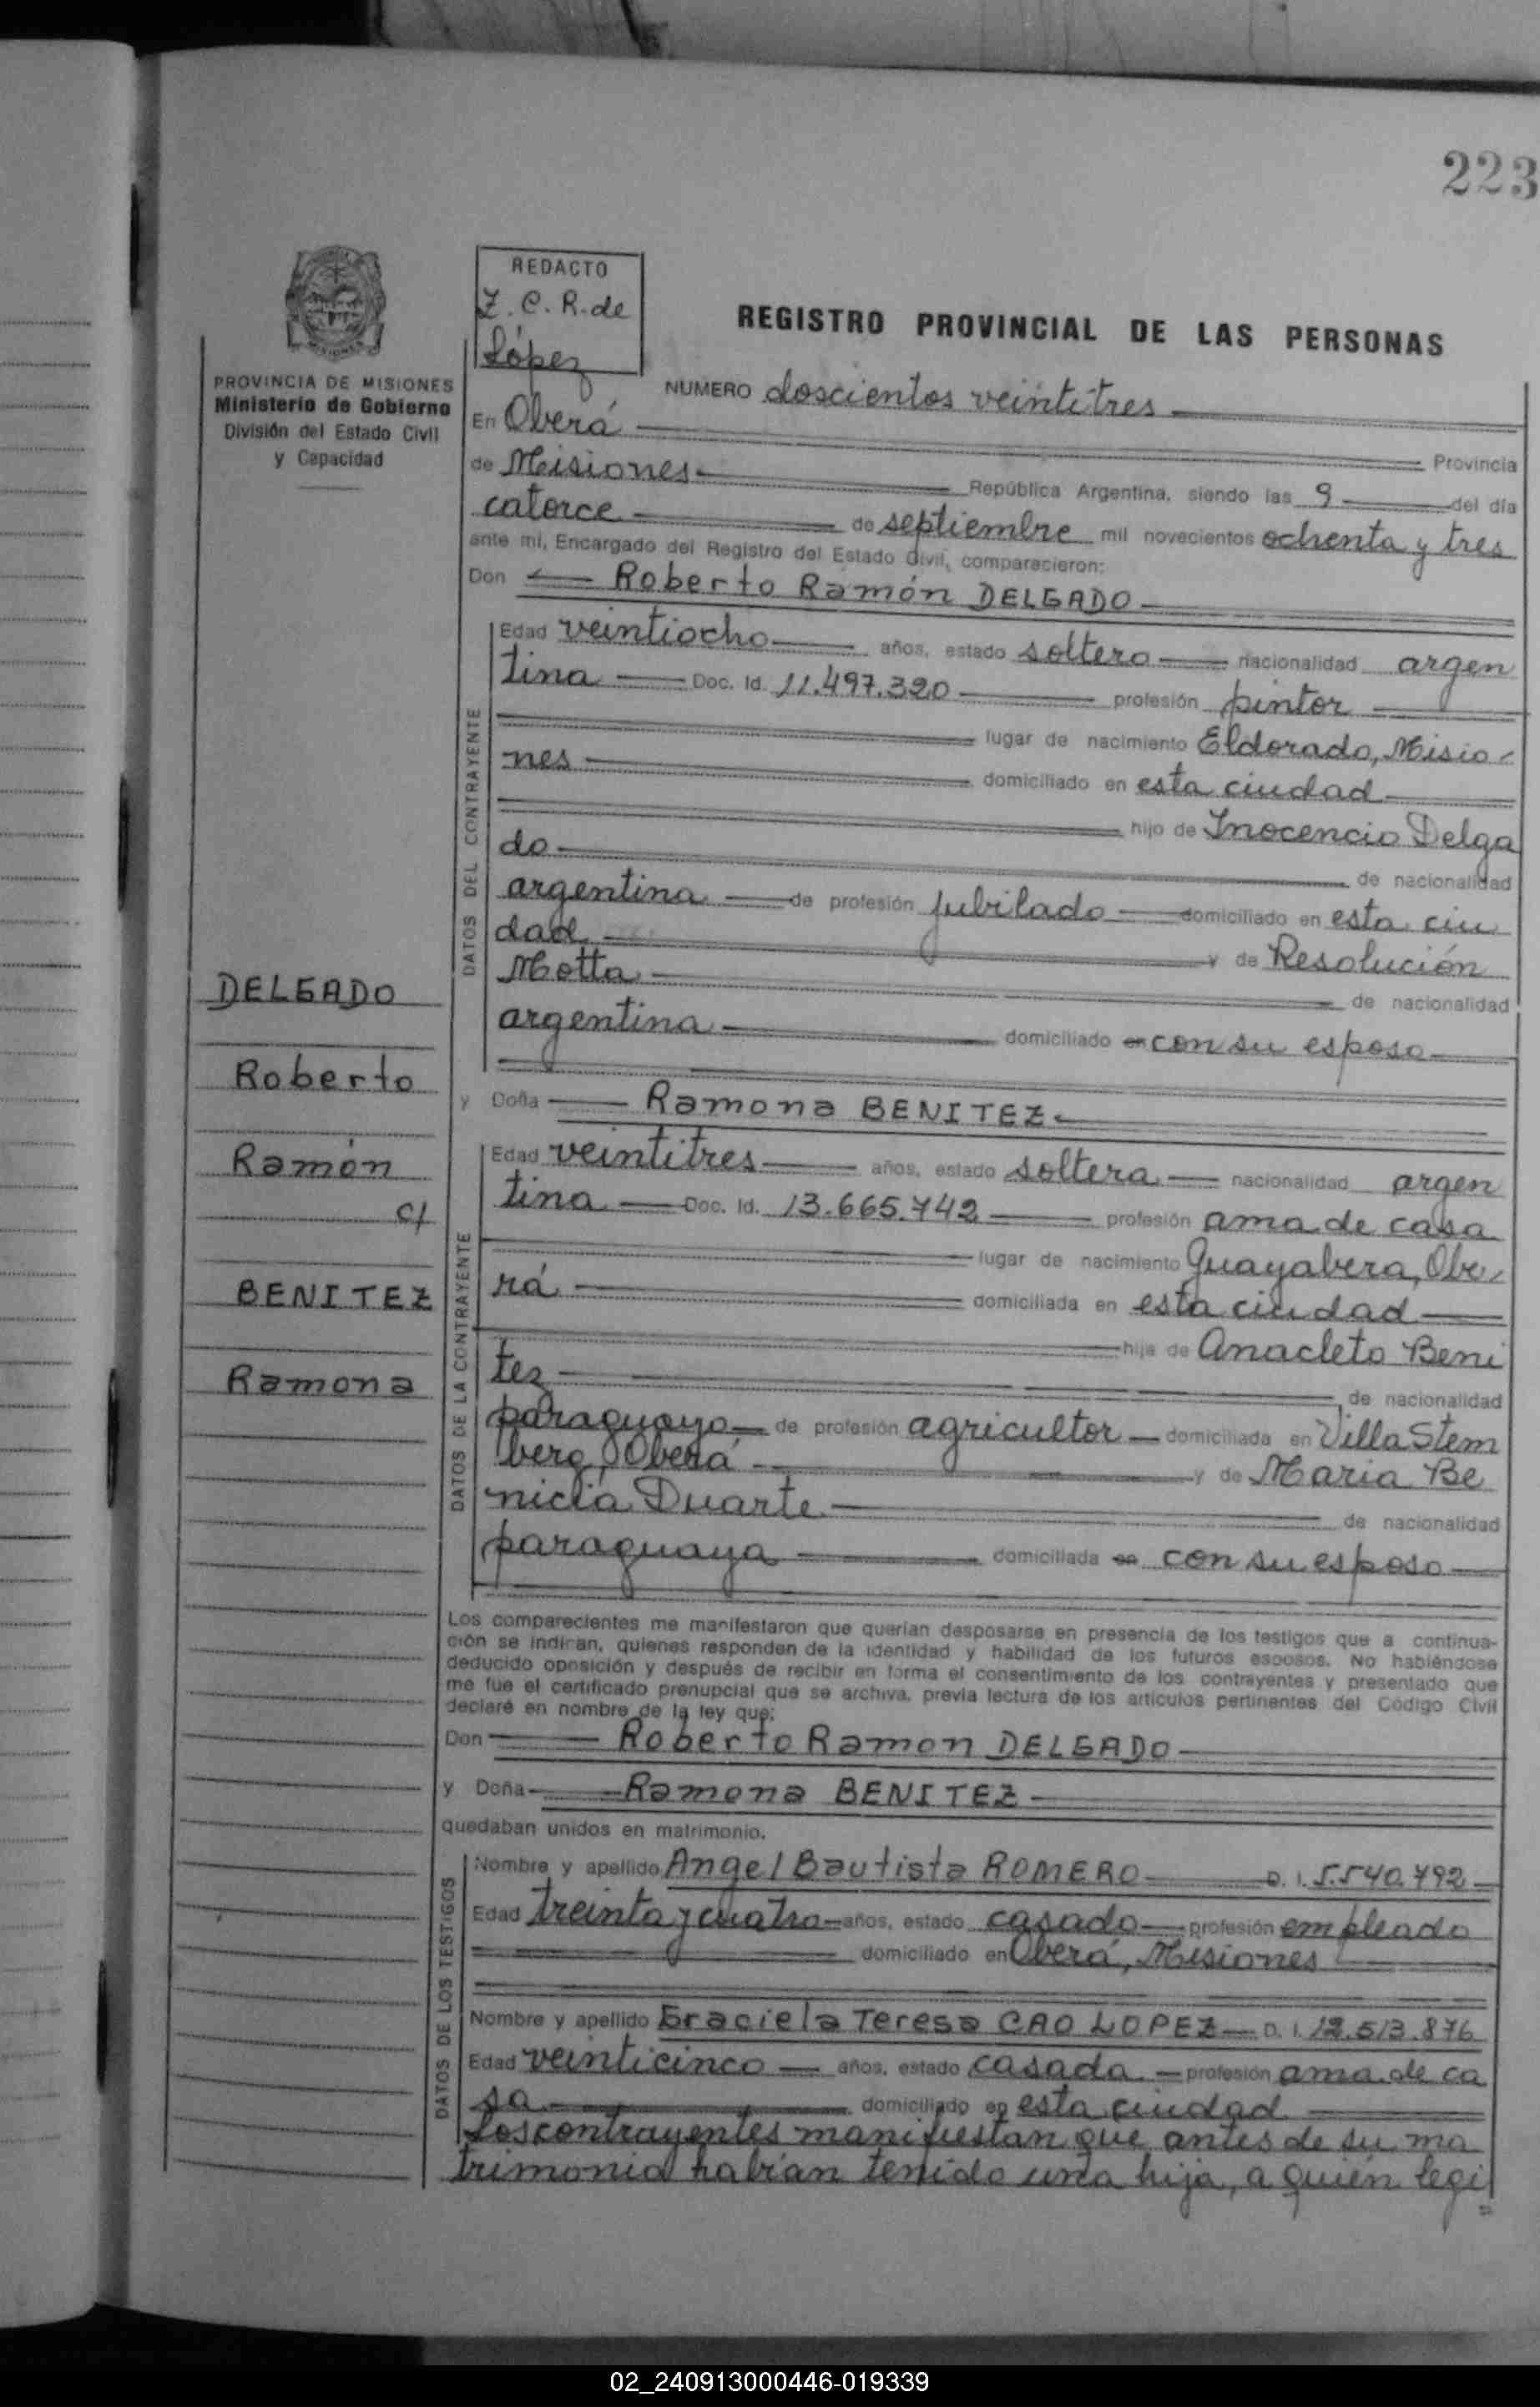 223
REDACTO
Z. C. R. de
López
REGISTRO PROVINCIAL DE LAS PERSONAS
PROVINCIA DE MISIONES
Ministerio de Gobierno
División del Estado Civil
y Capacidad
NUMERO doscientos veintitres
En Oberá
Provincia
de Misiones República Argentina, siendo las 9 del día
catorce de septiembre mil novecientos ochenta y tres
ante mi, Encargado del Registro del Estado Civil, comparecieron:
Don Roberto Ramón DELGADO
DATOS DEL CONTRAYENTE
Edad veintiocho años, estado soltero nacionalidad argen
tina Doc. Id. 11.497.320 profesión pintor
lugar de nacimiento Eldorado, Misio
nes domiciliado en esta ciudad
hijo de Inocencio Delga
do de nacionalidad
argentina de profesión jubilado domiciliado en esta ciu
dad y de Resolución
Motta de nacionalidad
argentina domiciliado en con su esposo
DELGADO
Roberto
Ramón
c/
BENITEZ
Ramona
y Doña Ramona BENITEZ
DATOS DE LA CONTRAYENTE
Edad veintitres años, estado soltera nacionalidad argen
tina Doc. Id. 13.665.742 profesión ama de casa
lugar de nacimiento Guayabera, Obe
rá domiciliada en esta ciudad
hija de Anacleto Beni
tez de nacionalidad
paraguayo de profesión agricultor domiciliada en Villa Stem
berg, Oberá y de Maria Be
nicia Duarte de nacionalidad
paraguaya domiciliada en con su esposo
Los comparecientes me manifestaron que querían desposarse en presencia de los testigos que a continua-
ción se indican, quienes responden de la identidad y habilidad de los futuros esposos. No habiéndose
deducido oposición y después de recibir en forma el consentimiento de los contrayentes y presentado que
me fue el certificado prenupcial que se archiva, previa lectura de los artículos pertinentes del Código Civil
declaré en nombre de la ley que:
Don Roberto Ramon DELGADO
y Doña Ramona BENITEZ
quedaban unidos en matrimonio.
DATOS DE LOS TESTIGOS
Nombre y apellido Angel Bautista ROMERO D. I. 5.540.792
Edad treinta y cuatro años, estado casado profesión empleado
domiciliado en Oberá, Misiones
Nombre y apellido Graciela Teresa CAO LOPEZ D. I. 12.513.876
Edad veinticinco años, estado casada profesión ama de ca
sa domiciliado en esta ciudad
Los contrayentes manifiestan que antes de su ma
trimonio habían tenido una hija, a quién legi
02_240913000446-019339